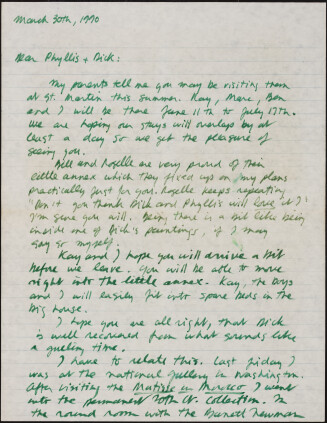 March 30th, 1990
Dear Phyllis + Dick:
My parents tell me you may be visiting them
at St. Martin this summer. Kay, Marc, Ben
and I will be there June 11th to July 17th.
We are hoping our stays will overlap by at
least a day so we get the pleasure of
seeing you.
Bill and Roselle are very proud of their
little annex which they fixed up on my plans
practically just for you. Roselle keeps repeating
"Don't you think Dick and Phyllis will love it?"
I'm sure you will. Being there is a bit like being
inside one of Dick's paintings, if I may
say so myself.
Kay and I hope you will arrive a bit
before we leave. You will be able to move
right into the little annex. Kay, the boys
and I will easily fit into spare beds in the
big house.
I hope you are all right, that Dick
is well recovered from what sounds like
a grueling time.
I have to relate this. Last Friday I
was at the National Gallery in Washington.
After visiting the Matisse in Morocco I went
into the permanent 20th C. Collection. In
the round room with the Barnett Newman